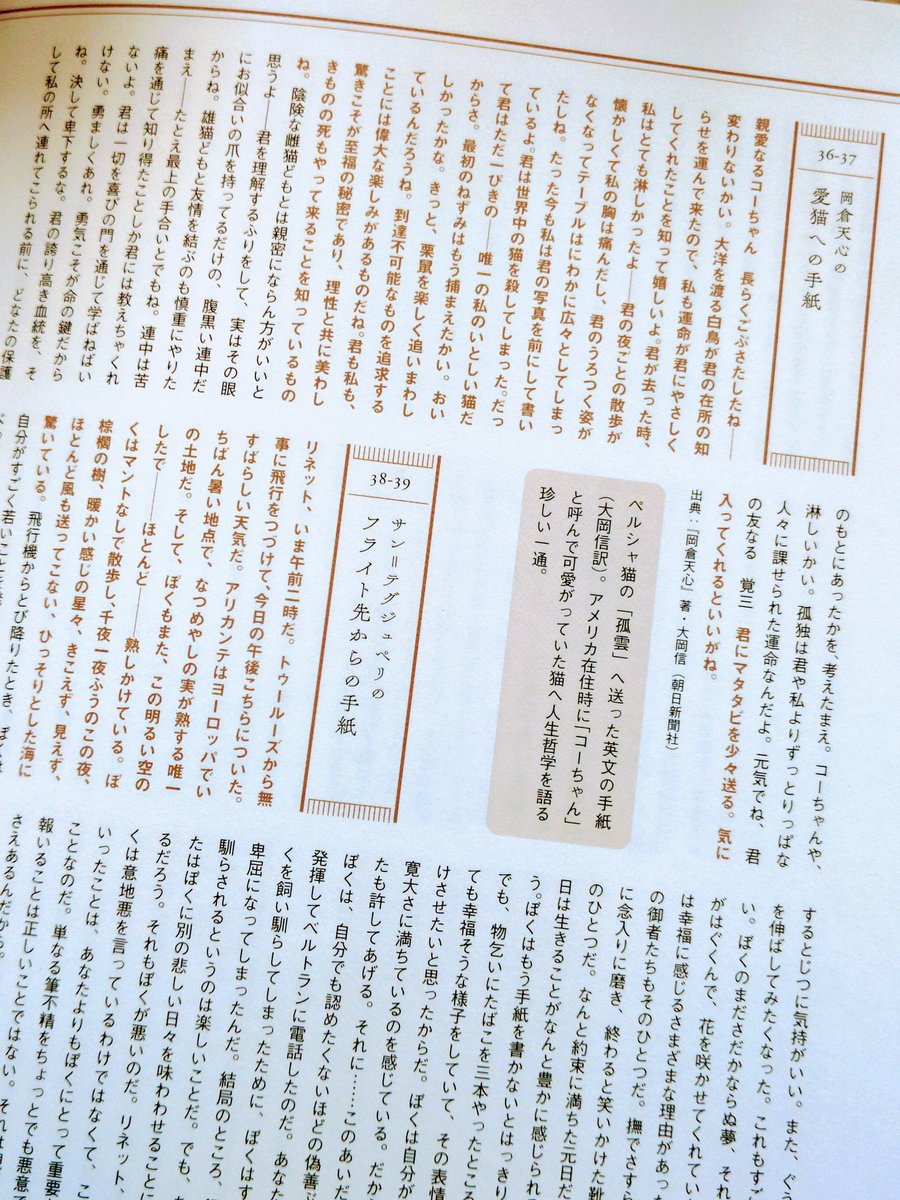 36-37
岡倉天心の
愛猫への手紙
親愛なるコーちゃん 長らくごぶさたしたね——
変わりないかい。大洋を渡る白鳥が君の在所の知
らせを運んで来たので、私も運命が君にやさしく
してくれたことを知って嬉しいよ。君が去った時、
私はとても淋しかったよ——君の夜ごとの散歩が
懐かしくて私の胸は痛んだし、君のうろつく姿が
なくなってテーブルはにわかに広々としてしまっ
たしね。たった今も私は君の写真を前にして書い
ているよ。君は世界中の猫を殺してしまった。だっ
て君はただ一ぴきの——唯一の私のいとしい猫だ
からさ。最初のねずみはもう捕まえたかい。おい
しかったかな。きっと、栗鼠を楽しく追いまわし
ているんだろうね。到達不可能なものを追求する
ことには偉大な楽しみがあるものだね。君も私も、
驚きこそが至福の秘密であり、理性と共に美わし
きものの死もやって来ることを知っているもの
ね。陰険な雌猫どもとは親密にならん方がいいと
思うよ——君を理解するふりをして、実はその眼
にお似合いの爪を持ってるだけの、腹黒い連中だ
からね。雄猫どもと友情を結ぶのも慎重にやりた
まえ——たとえ最上の手合いとでもね。連中は苦
痛を通じて知り得たことしか君には教えちゃくれ
ないよ。君は一切を喜びの門を通じて学ばねばい
けない。勇ましくあれ。勇気こそが命の鍵だから
ね。決して卑下するな。君の誇り高き血統を、そ
して私の所へ連れてこられる前に、どなたの保護
のもとにあったかを、考えたまえ。コーちゃんや、
淋しいかい。孤独は君や私よりずっとりっぱな
人々に課せられた運命なんだよ。元気でね、君
の友なる 覚三 君にマタタビを少々送る。気に
入ってくれるといいがね。
出典:『岡倉天心』著・大岡信(朝日新聞社)
ペルシャ猫の「孤雲」へ送った英文の手紙
(大岡信訳)。アメリカ在住時に「コーちゃん」
と呼んで可愛がっていた猫へ人生哲学を語る
珍しい一通。
38-39
サン=テグジュペリの
フライト先からの手紙
リネット、いま午前二時だ。トゥールーズから無
事に飛行をつづけて、今日の午後こちらについた。
すばらしい天気だ。アリカンテはヨーロッパでい
ちばん暑い地点で、なつめやしの実が熟する唯一
の土地だ。そして、ぼくもまた、この明るい空の
したで——ほとんど——熟しかけている。ぼ
くはマントなしで散歩し、千夜一夜ふうのこの夜、
棕櫚の樹、暖かい感じの星々、きこえず、見えず、
ほとんど風も送ってこない、ひっそりとした海に
驚いている。 飛行機からとび降りたとき、ぼくは
自分がすごく若いことを
するとじつに気持がいい。また、ぐ
を伸ばしてみたくなった。これもす
い。ぼくのまださだかならぬ夢、それ
がはぐくんで、花を咲かせてくれてい
は幸福に感じるさまざまな理由があっ
の御者たちもそのひとつだ。撫でさす
に念入りに磨き、終わると笑いかけた靴
のひとつだ。なんと約束に満ちた元日だ
日は生きることがなんと豊かに感じられ
う。ぼくはもう手紙を書かないとはっきり
でも、物乞いにたばこを三本やったところ
ても幸福そうな様子をしていて、その表情
けさせたいと思ったからだ。ぼくは自分が
寛大さに満ちているのを感じている。だか
たも許してあげる。それに……このあいだ
ぼくは、自分でも認めたくないほどの偽善
発揮してベルトランに電話したのだ。あな
くを飼い馴らしてしまったために、ぼくはす
卑屈になってしまったんだ。結局のところ、
馴らされるというのは楽しいことだ。でも、
たはぼくに別の悲しい日々を味わわせること
るだろう。それもぼくが悪いのだ。リネット、
くは意地悪を言っているわけではなくて、こ
いったことは、あなたよりもぼくにとって重要
ことなのだ。単なる筆不精をちょっとでも悪意で
報いることは正しいことではない。それは
さえあるんだから。